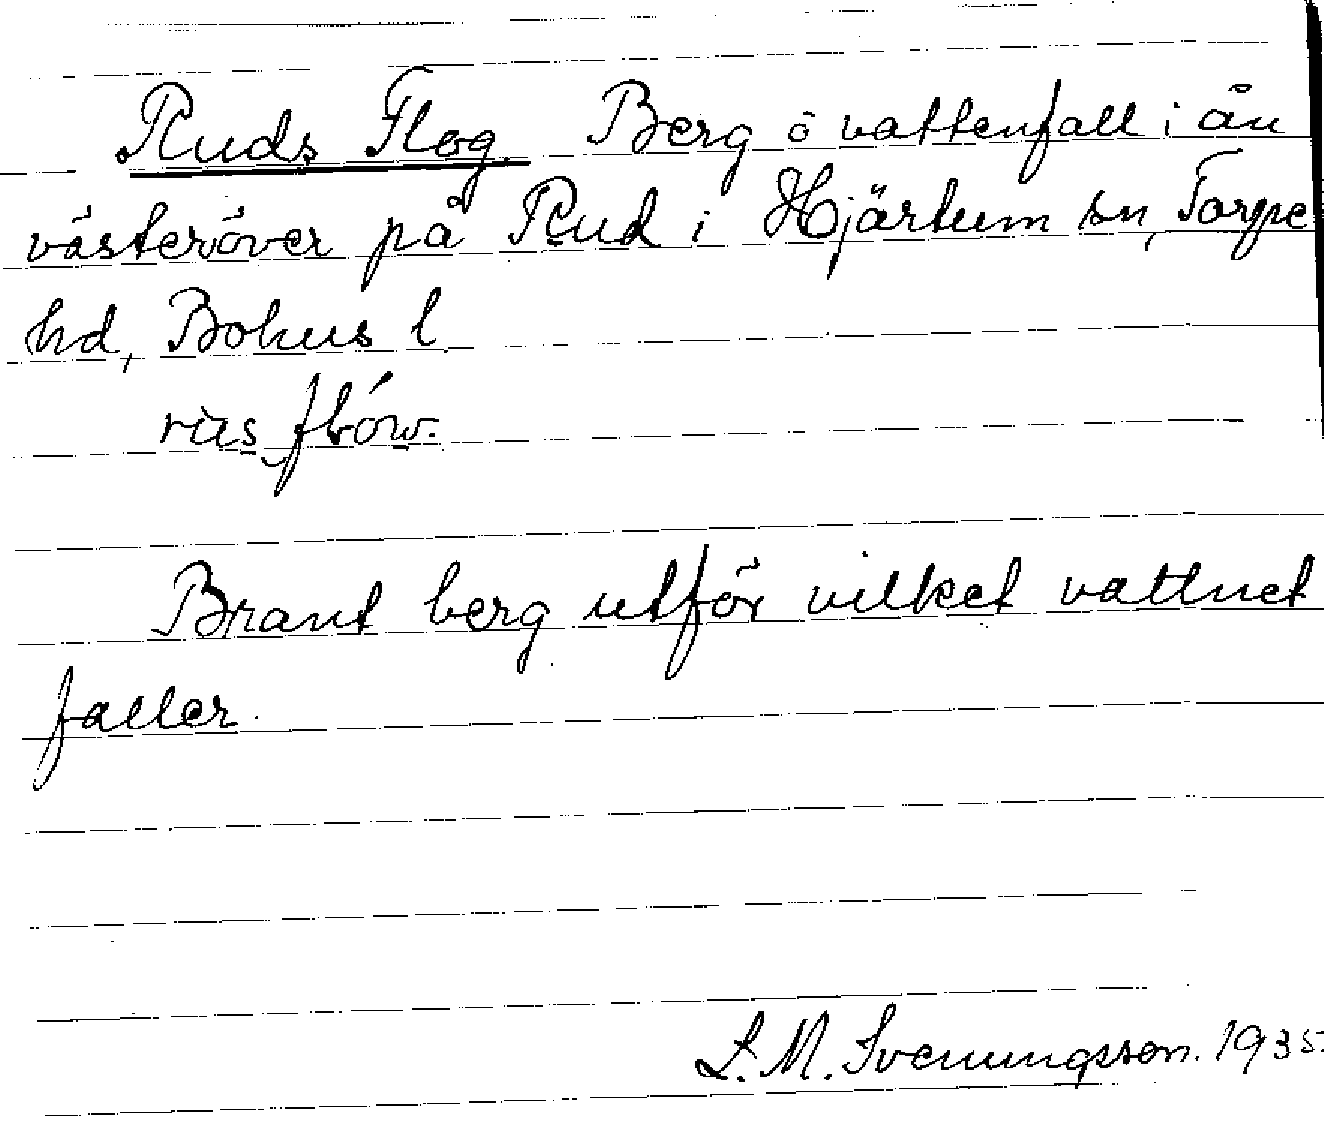 Ruds Flog Berg o vattenfall i ån
västeröver på Rud i Hjärtum sn, Torpe
hd, Bohus l
Brant berg utför vilket vattnet
faller.
S. M. Svenungsson. 1935.